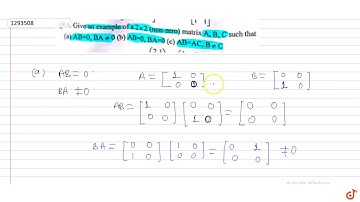 1293508
Give an example of a 2x2 (non-zero) matrix A, B, C such that
(a) AB=0, BA ≠ 0 (b) AB=0, BA=0 (c) AB=AC, B ≠ C
(a) AB = 0 A = [1 0 B = [0 0
BA ≠ 0 0 0] 1 0]
AB = [1 0 [0 0 = [0 0
0 0] 1 0] 0 0]
BA = [0 0 [1 0 = [0 1 ≠ 0
1 0] 0 0] 0 0]